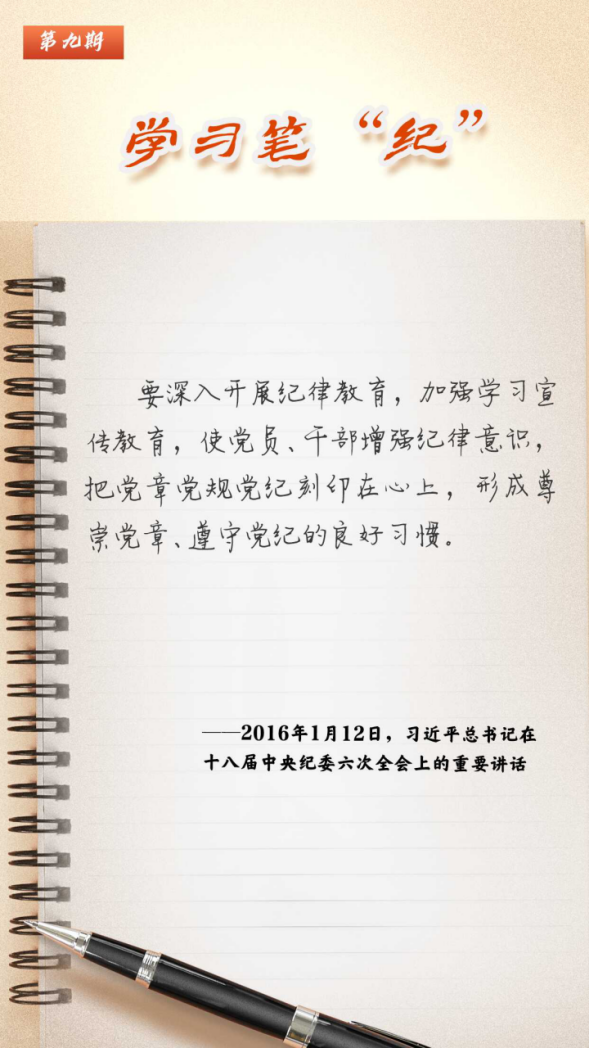 第九期
学习笔“纪”
要深入开展纪律教育，加强学习宣
传教育，使党员、干部增强纪律意识，
把党章党规党纪刻印在心上，形成尊
崇党章、遵守党纪的良好习惯。
——2016年1月12日，习近平总书记在
十八届中央纪委六次全会上的重要讲话